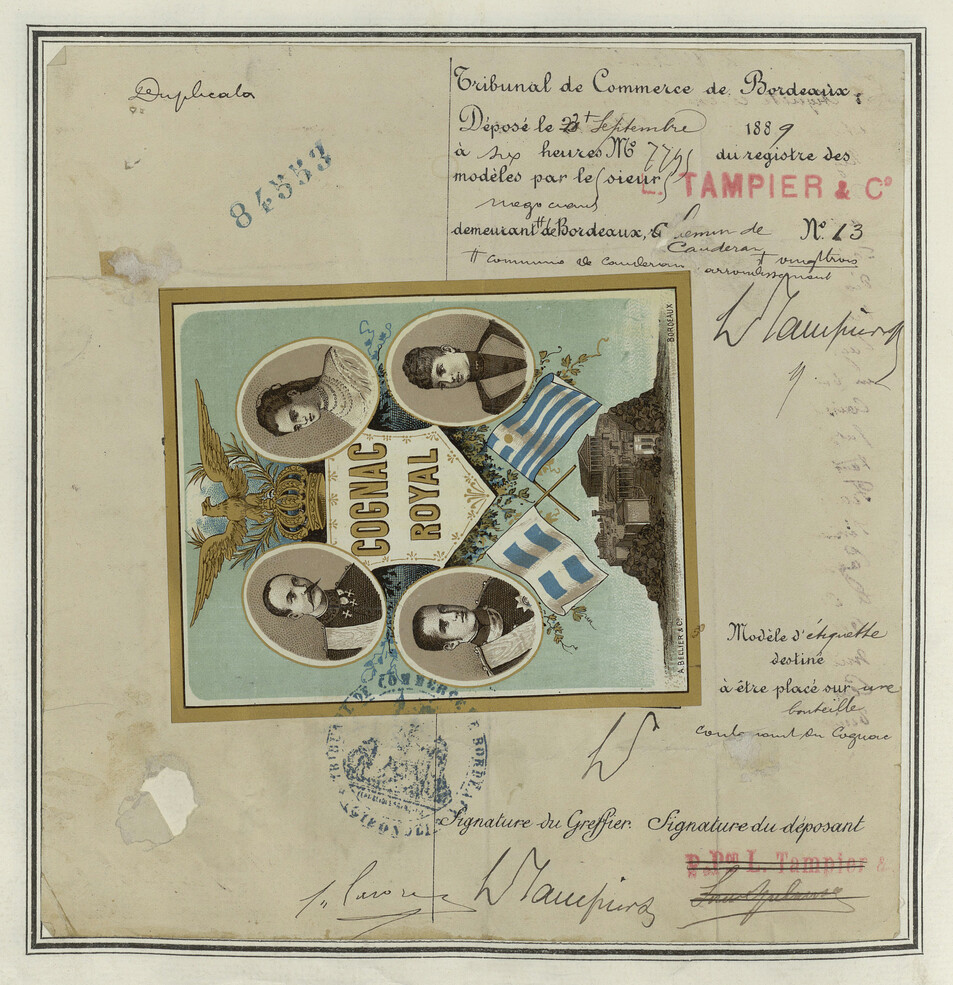 Duplicata
84553
Tribunal de Commerce de Bordeaux.
Déposé le Septembre 1889
à six heures No du registre des
modèles par le sieur L. TAMPIER & Co
negociant
demeurant de Bordeaux, Chemin de No. 13
Cauderan
commune de cauderan arrondissement
vingt trois
L Tampier
COGNAC
ROYAL
BORDEAUX
A. BELLIER & Cie.
Modèle d'étiquette
destiné
à être placé sur une
bouteille
contenant du Cognac
TRIBUNAL DE COMMERCE DE BORDEAUX
Signature du Greffier. Signature du déposant
P. Pon L. Tampier &
L Tampier